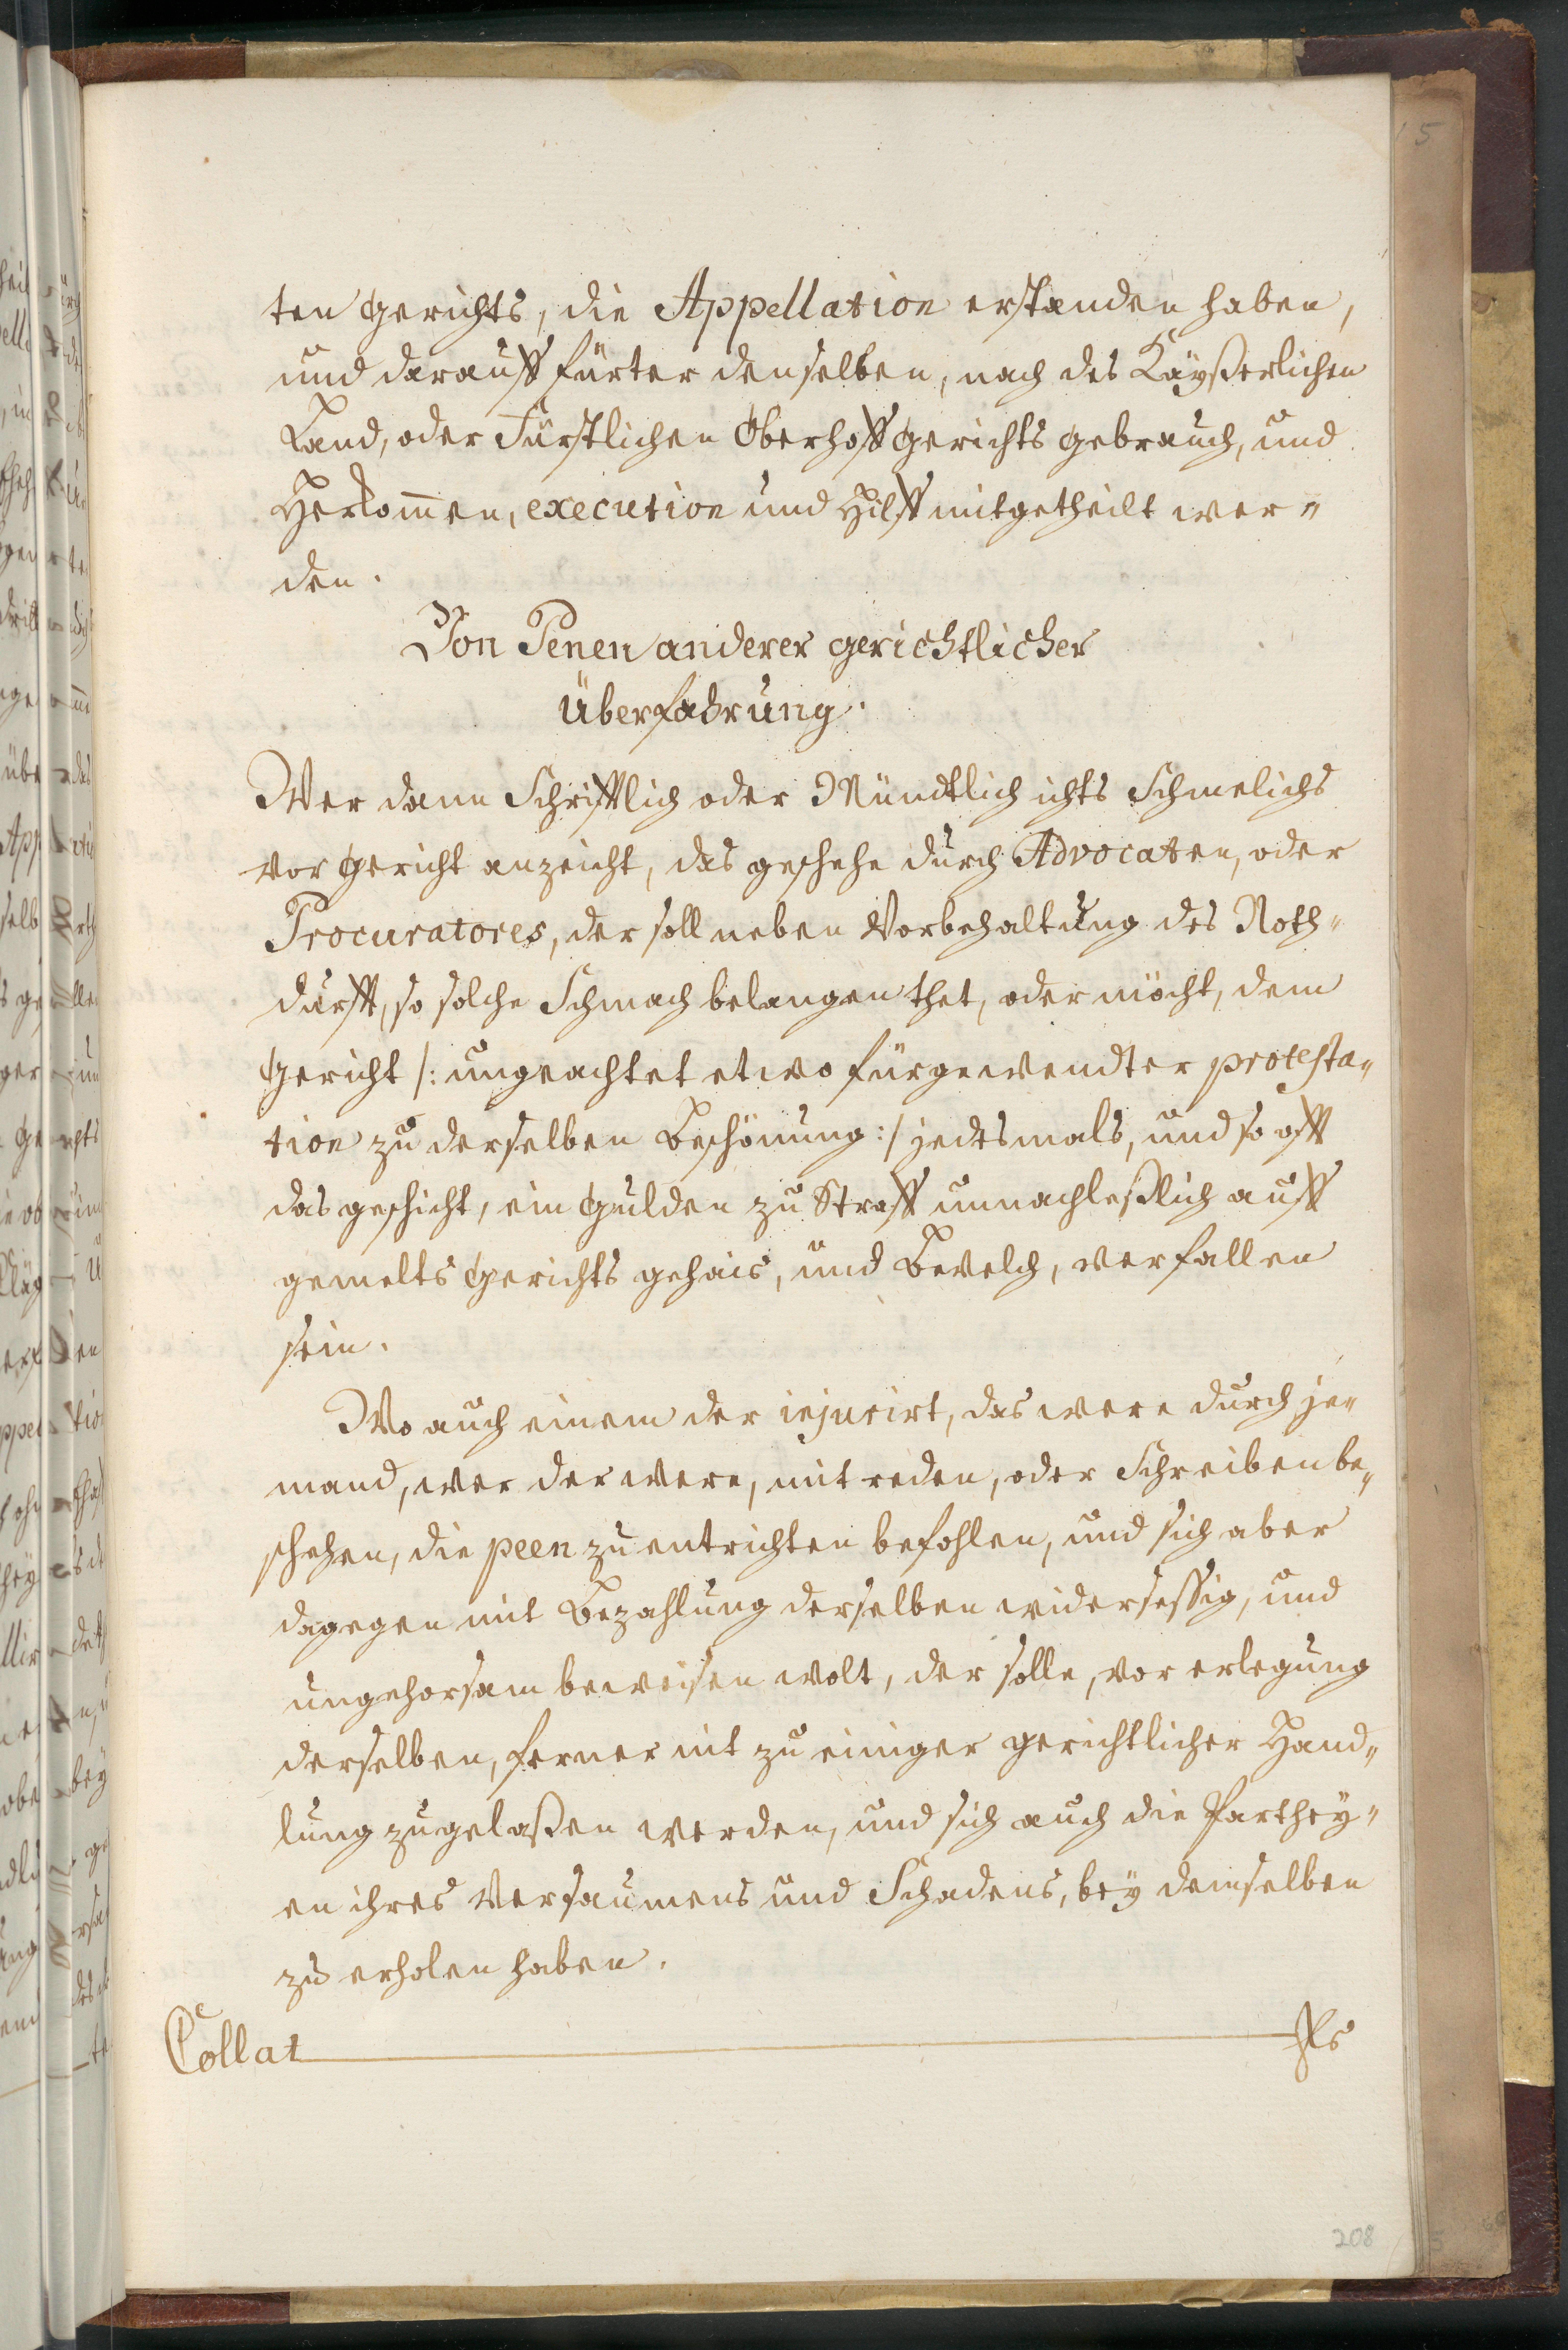 ten Gerichts, die Appellation erstanden haben,
und darauff fürter denselben, nach des Käyßerlichen
Land, oder Fürstlichen Oberhoff Gerichts gebrauch, und
Herkom̄en, execution und Hilff mitgetheilt wer„
den.
Von Penen anderer gerichtlicher
Überfahrung.
Wer dann Schrifftlich oder Mündtlich ichts Schmelichs
vor Gericht anzeicht, das geschehe durch Advocaten, oder
Procuratores, der soll neben Vorbehaltung des Noth„
durfft, so solche Schmach belangen thet, oder möcht, dem
Gericht /: ungeachtet etwo fürgewendter protesta„
tion zu derselben Beschönung :/ jedesmals, und so offt
das geschicht, ein Gulden zu Straff unnachleßlich auff
gemelts Gerichts gehais, und Bevelch, verfallen
sein.
Wo auch einem der injurirt, das were durch je„
mand, wer der were, mit reden, oder Schreiben be„
schehen, die peen zu entrichten befohlen, und sich aber
dagegen mit Bezahlung derselben widersessig, und
ungehorsam beweisen wolt, der solle, vor erlegung
derselben, ferner nit zu einiger gerichtlicher Hand„
lung zugelaßen werden, und sich auch die Parthey„
en ihres Versaumens und Schadens, bey demselben
zu erholen haben.
Collat
208